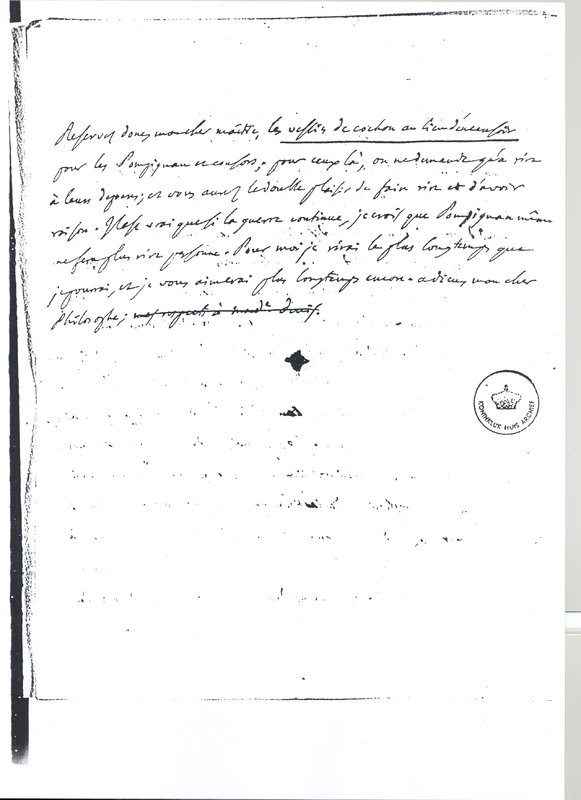 Reservez donc, mon cher maître, les vessies de cochon au lieu d'encensoir
pour les Pompignan et consors; pour ceux là, on ne demande qu'à rire
à leurs depens; et vous aurez le double plaisir de faire rire et d'avoir
raison. Il est vrai que si la guerre continue, je crois que Pompignan même
ne fera plus rire personne. Pour moi je rirai le plus longtemps que
je pourrai, et je vous aimerai plus longtemps encore. adieu mon cher
Philosophe; mes respects à made Denis.
KONINKLIJK HUIS ARCHIEF